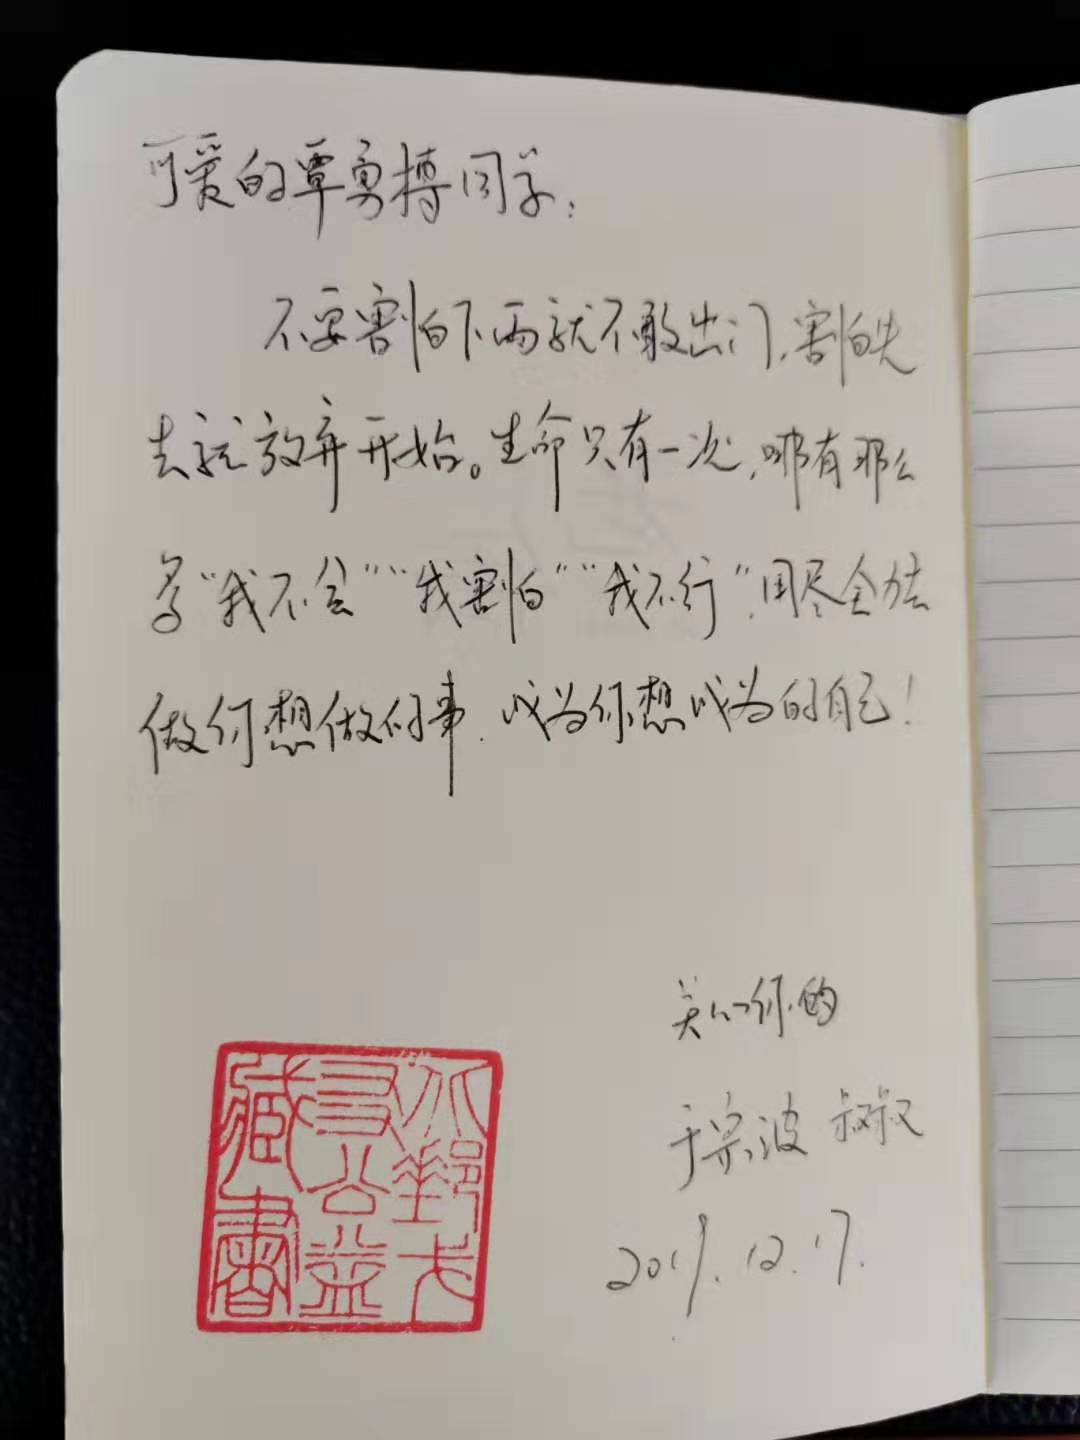 可爱的覃勇搏同学:
不要害怕下雨就不敢出门,害怕失
去就放弃开始。生命只有一次,哪有那么
多“我不会”“我害怕”“我不行”,用尽全力去
做你想做的事,成为你想成为的自己!
关心你的
于宗波叔叔
2019.12.17.
公益
藏書